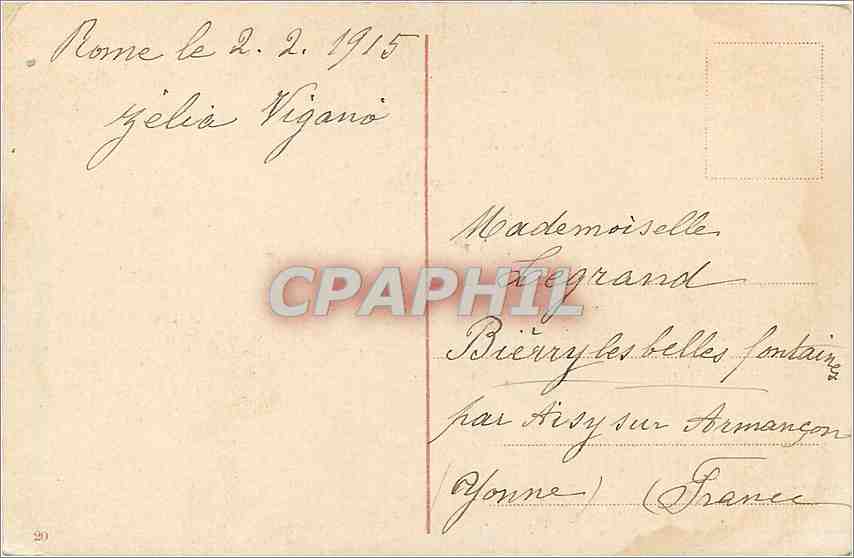 Rome le 2. 2. 1915
Zélia Viganò
Mademoiselle
Legrand
Bièrry les belles fontaines
par Aisy sur Armançon
(Yonne) (France
CPAPHIL
20